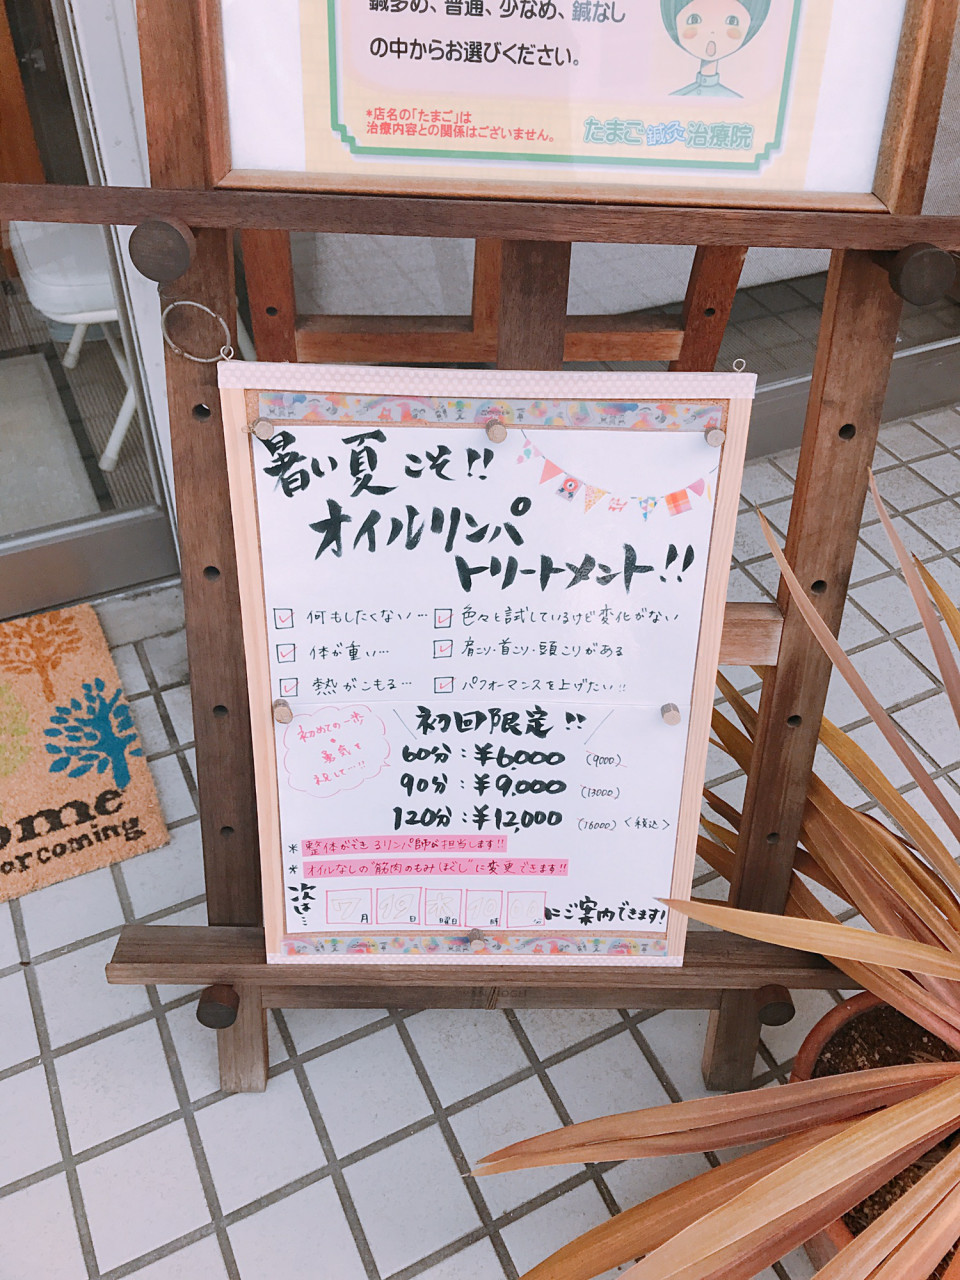 鍼多め、普通、少なめ、鍼なし
の中からお選びください。
*店名の「たまご」は
治療内容との関係はございません。
たまご鍼灸治療院
暑い夏こそ!!
オイルリンパ
トリートメント!!
何もしたくない…
色々と試しているけど変化がない
体が重い…
肩こり・首こり・頭こりがある
熱がこもる…
パフォーマンスを上げたい!!
初めての一歩
勇気を
祝して…!!
初回限定!!
60分:¥6,000 (9000)
90分:¥9,000 (13000)
120分:¥12,000 (16000) <税込>
* 整体ができるリンパ師が担当します!!
* オイルなしの"筋肉のもみほぐし"に変更できます!!
次は… 7月 19日 水曜日 10時 分 にご案内できます!
ome
or coming